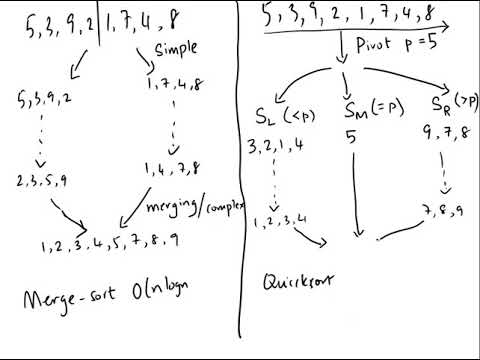 5, 3, 9, 2 | 1, 7, 4, 8
Simple
5, 3, 9, 2
1, 7, 4, 8
2, 3, 5, 9
1, 4, 7, 8
merging/complex
1, 2, 3, 4, 5, 7, 8, 9
Merge-sort O(nlogn
5, 3, 9, 2, 1, 7, 4, 8
Pivot p = 5
SL (<p)
SM (=p)
SR (>p)
3, 2, 1, 4
5
9, 7, 8
1, 2, 3, 4
7, 8, 9
Quicksort